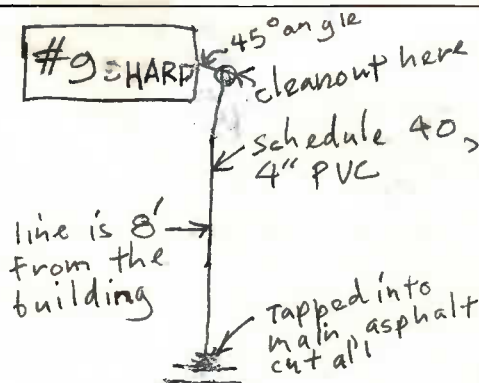 #9 HARP
45° angle
cleanout here
schedule 40,
4" PVC
line is 8'
from the
building
Tapped into
main, asphalt
cut